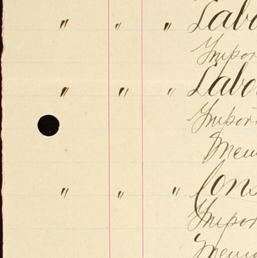 " " " Labo
Impor
" " " Labo
Impor
Mem
" " " Cons
Impor
Memo